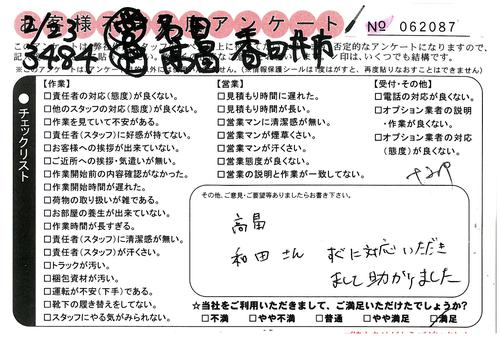 お客様不満足度アンケート
2/23
3484
No 062087
春日井市
このアンケートは弊社
否定的なアンケートになりますので、
印は、いくつでも結構です。
(※情報保護シールは1度はがすと、再度貼りなおすことはできません)
チェックリスト
【作業】
□責任者の対応(態度)が良くない。
□他のスタッフの対応(態度)が良くない。
□作業を見ていて不安がある。
□責任者(スタッフ)に好感が持てない。
□お客様への挨拶が出来ていない。
□ご近所への挨拶・気遣いが無い。
□作業開始前の内容確認がなかった。
□作業開始時間が遅れた。
□荷物の取り扱いが雑である。
□お部屋の養生が出来ていない。
□作業時間が長すぎる。
□責任者(スタッフ)に清潔感が無い。
□責任者(スタッフ)が汗くさい。
□トラックが汚い。
□梱包資材が汚い。
□運転が不安(下手)である。
□靴下の履き替えをしてない。
□スタッフにやる気がみられない。
【営業】
□見積もり時間に遅れた。
□見積もり時間が長い。
□営業マンに清潔感が無い。
□営業マンが煙草くさい。
□営業マンが汗くさい。
□営業態度が良くない。
□営業の説明と作業が一致してない。
【受付・その他】
□電話の対応が良くない。
□オプション業者の説明
・作業が良くない。
□オプション業者の対応
(態度)が良くない。
その他、ご意見・ご要望等ありましたらお書き下さい。
高畠
和田さん すぐに対応いただき
まして助かりました
☆当社をご利用いただきまして、ご満足いただけたでしょうか?
□不満 □やや不満 □普通 □やや満足 □満足